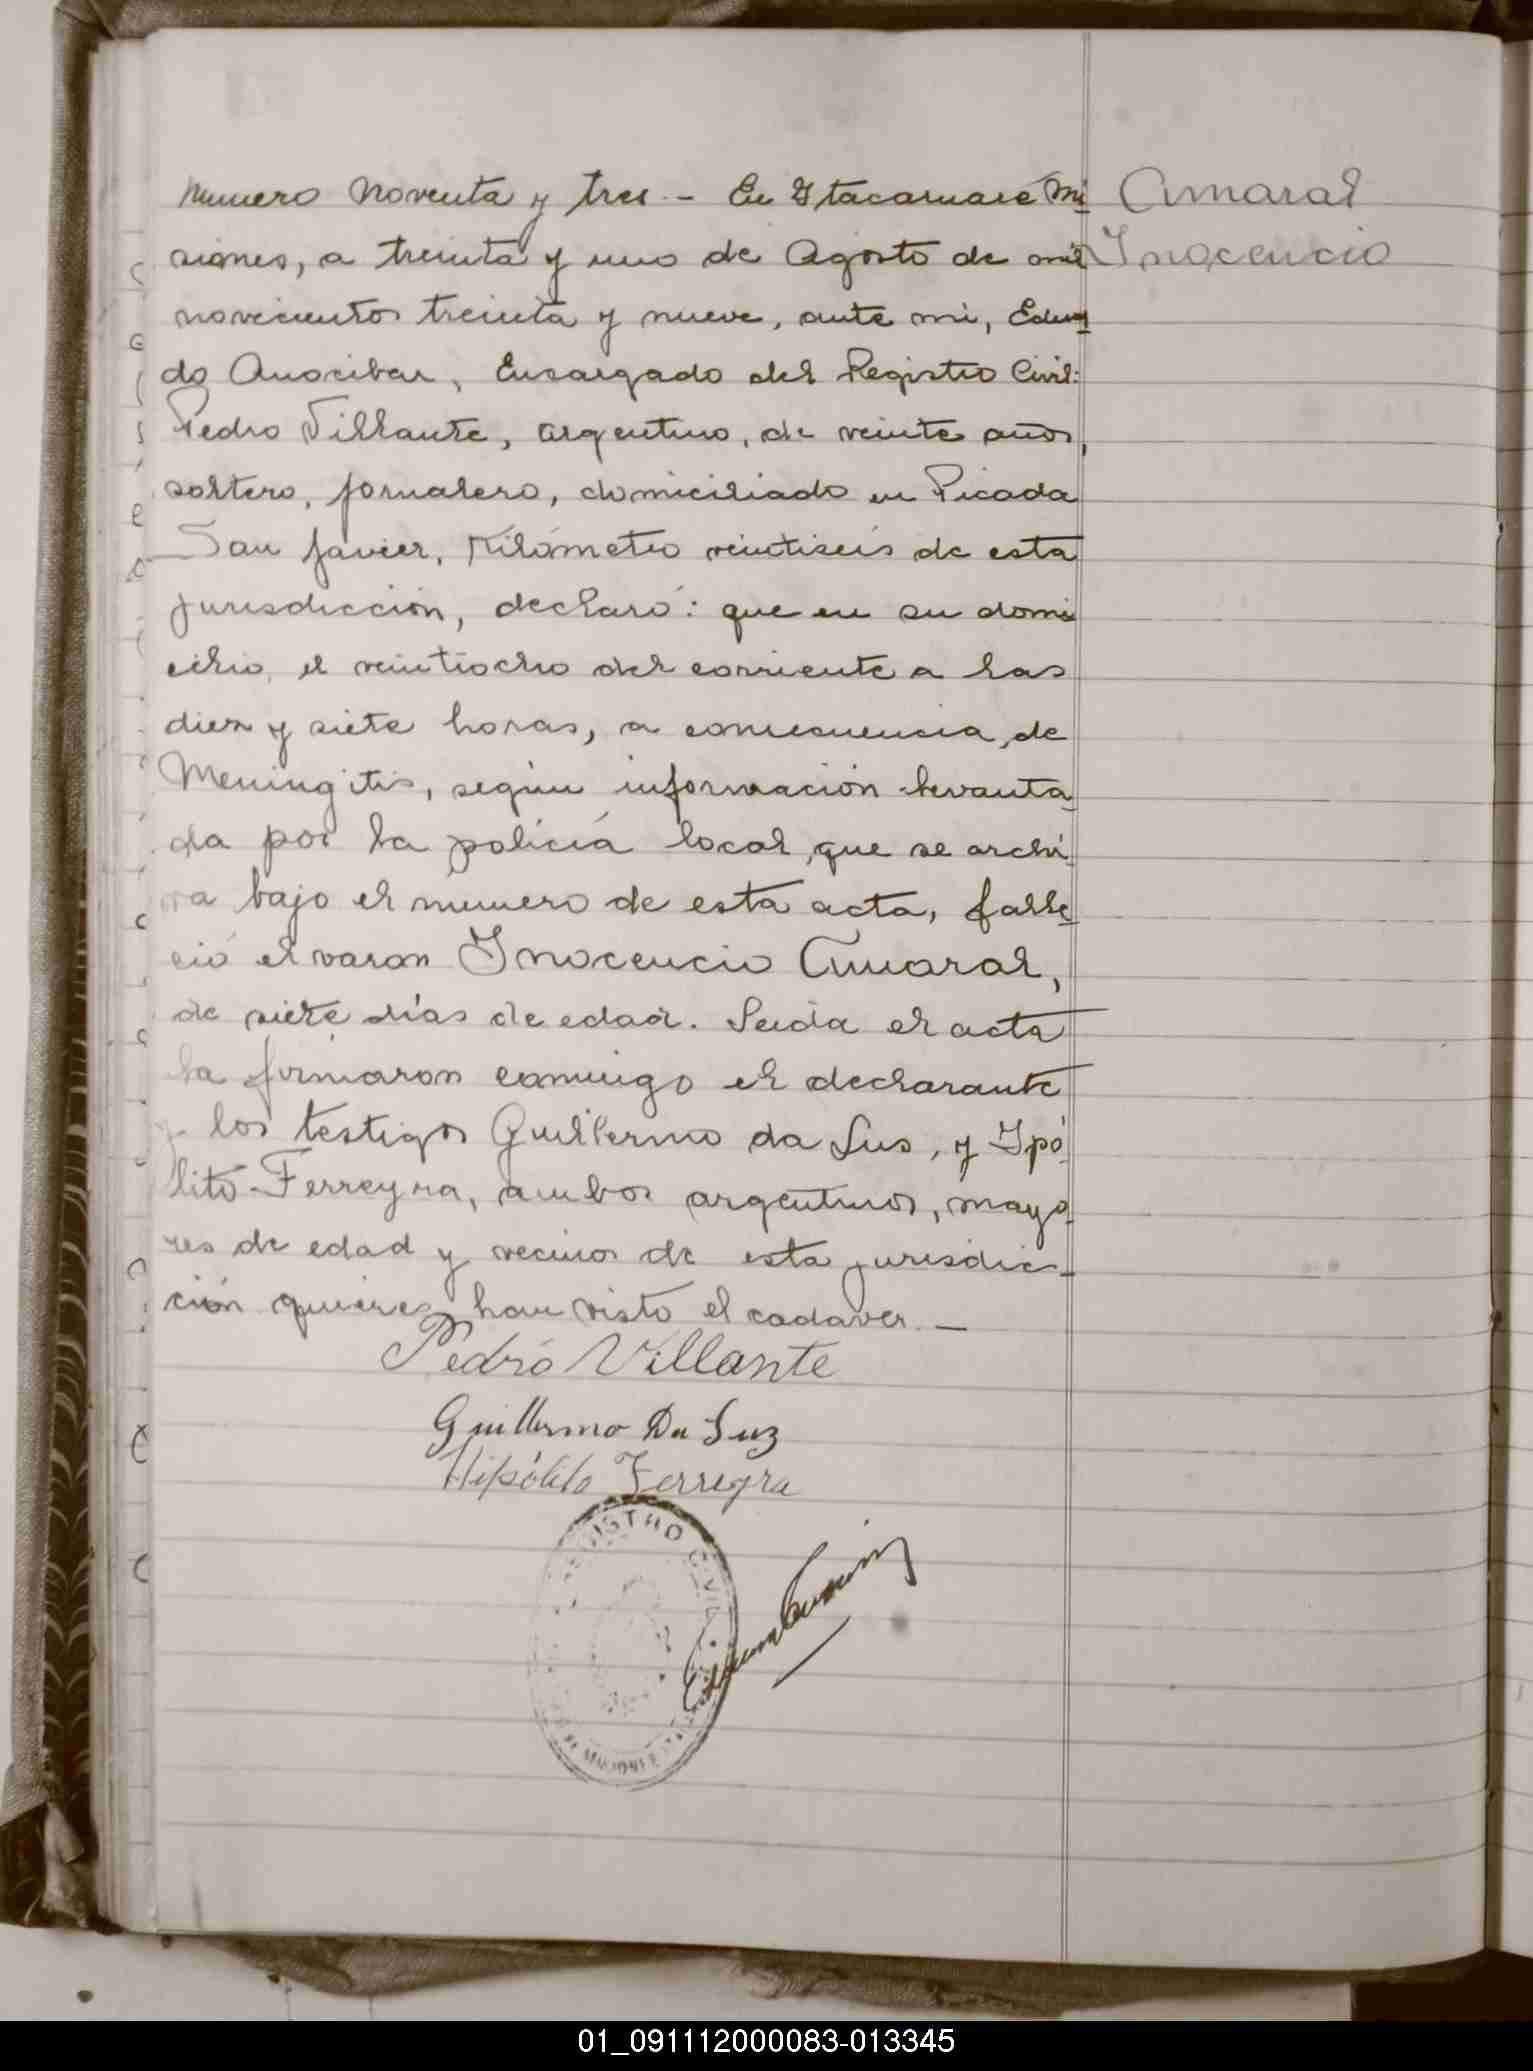 numero noventa y tres - En Itacaruaré Mi
Amaral
siones, a treinta y uno de Agosto de mil
Inocencio
novecientos treinta y nueve, ante mi, Eduar
do Anocibar, Encargado del Registro Civil:
Pedro Villante, argentino, de veinte años,
soltero, jornalero, domiciliado en Picada
San Javier, Kilómetro veintiseis de esta
jurisdicción, declaró: que en su domi
cilio, el veintiocho del corriente a las
diez y siete horas, a consecuencia, de
Meningitis, según información levanta
da por la policía local, que se archi
va bajo el numero de esta acta, falle
ció el varon Inocencio Amaral,
de siete días de edad. Leida el acta
la firmaron conmigo el declarante
y los testigos Guillermo da Lus, y Ipó
lito Ferreyra, ambos argentinos, mayo
res de edad y vecinos de esta jurisdic-
ción quienes han visto el cadaver. -
Pedro Villante
Guillermo Da Luz
Hipólito Ferreyra
REGISTRO CIVIL
01_091112000083-013345